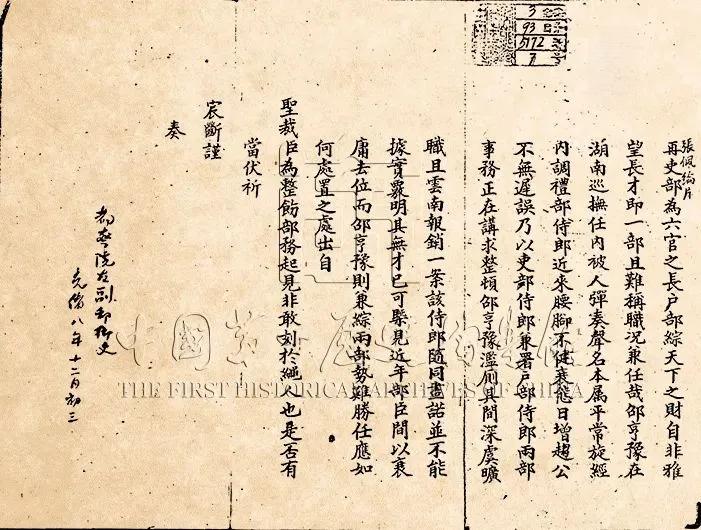 張佩綸片
再吏部為六官之長戶部綜天下之財自非雅
望長才即一部且難稱職況兼任哉邵亨豫在
湖南巡撫任內被人彈奏聲名本屬平常旋經
內調禮部侍郎近來腰腳不健衰態日增趨公
不無遲誤乃以吏部侍郎兼署戶部侍郎兩部
事務正在講求整頓邵亨豫濫廁其間深虞曠
職且雲南報銷一案該侍郎隨同畫諾並不能
據實覈明其無才已可槩見近年部臣間以衰
庸去位而邵亨豫則兼綜兩部勢難勝任應如
何處置之處出自
聖裁臣為整飭部務起見非敢刻於繩人也是否有
當伏祈
宸斷謹
奏
都察院左副都御史
光緒八年十二月初三
3
93
5172
7
中國第一歷史檔案館
THE FIRST HISTORICAL ARCHIVES OF CHINA